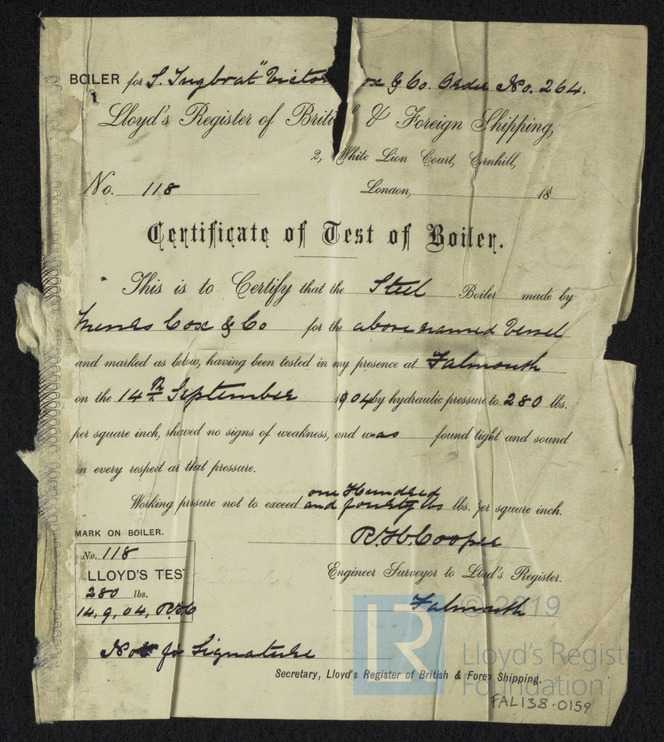 BOILER for S. Tugboat "Victor ox & Co. Order No. 264.
Lloyd's Register of Briti & Foreign Shipping,
2, White Lion Court, Cornhill,
No. 118 London, 18
Certificate of Test of Boiler.
This is to Certify that the Steel Boiler made by
Messrs Cox & Co for the above named Vessel
and marked as below, having been tested in my presence at Falmouth
on the 14th September 1904 by hydraulic pressure to 280 lbs.
per square inch, showed no signs of weakness, and was found tight and sound
in every respect at that pressure.
Working pressure not to exceed one Hundred and fourty lbs lbs. per square inch.
MARK ON BOILER.
No. 118
LLOYD'S TES
280 lbs.
14.9.04, RHC
R.H. Cooper
Engineer Surveyor to Lloyd's Register.
Falmouth
Not for Signature
Secretary, Lloyd's Register of British & Foreign Shipping.
© 2019
LR
Lloyd's Register
Foundation
FAL138-0159